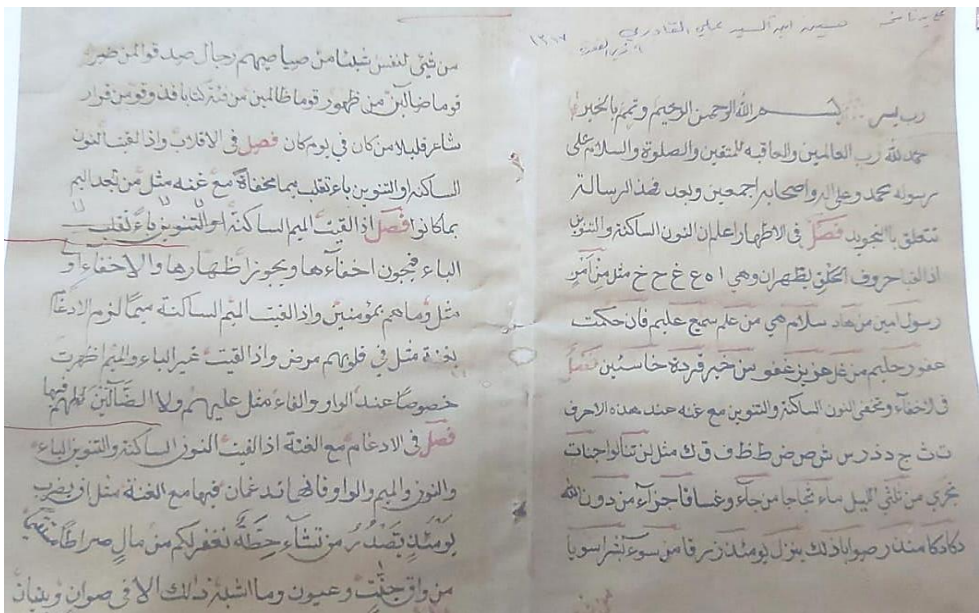 حسين ابن السيد علي القادري
١٣١٧
رب يسر بسم الله الرحمن الرحيم وتمم بالخير
حمد لله رب العالمين والعاقبه للمتقين والصلوة والسلام على
رسوله محمد وعلى اله واصحابه اجمعين وبعد فهذ الرسالة
تتعلق بالتجويد فصل في الاظهار اعلم ان النون الساكنة والتنوين
اذا لقيا حروف الحلق يظهران وهي ا ه ع غ ح خ مثل من آمن
رسول امين من هاد سلام هي من علم سميع عليم فان حكمت
غفور حليم من غل عزيز غفور من خير قردة خاسئين فصل
في الاخفآء وتخفى النون الساكنة والتنوين مع غنه عند هذه الاحرف
ت ث ج د ذ ر س ش ص ض ط ظ ف ق ك مثل لن تنالوا جنات
تجري من ثلثي الليل ماء ثجاجا من جآء وغساقا جزآء من دون الله
دكا دكا منذر صوابا ذلك ينزل يومئذ زرقا من سوء بشرا سويا
من شئ لنفس شيئا من صياصيهم رجال صدقوا لمن ضر
قوما ضالين من ظهور قوما ظالمين من فئة كتابا فذوقوا من قرار
شاعر قليلا من كان في يوم كان فصل في الاقلاب واذا لقيت النون
الساكنة او التنوين باء تقلب بما مخفاة مع غنه مثل من بعد اليم
بما كانوا فصل اذ القيت الميم الساكنة او التنوين باء تقلب
الباء فيجون اخفآءها ويجوز اظهارها والاخفاء او
مثل وما هم بمؤمنين واذ القيت الميم الساكنة ميما لزم الادغا
بغنة مثل في قلوبهم مرض واذا القيت غير الباء والميم اظهرت
خصوصا عند الواو والفاء مثل عليهم ولا الضآلين لهم فيها
فصل في الادغام مع الغنة اذ القيت النون الساكنة والتنوين الياء
والنون والميم والواو فانها تدغمان فيها مع الغنة مثل ان يضرب
يومئذ يصدر من نشآء حطة نغفر لكم من مال صراطا مستقيما
من واق جنت وعيون وما اشبه ذالك الا في صوان وبنيان